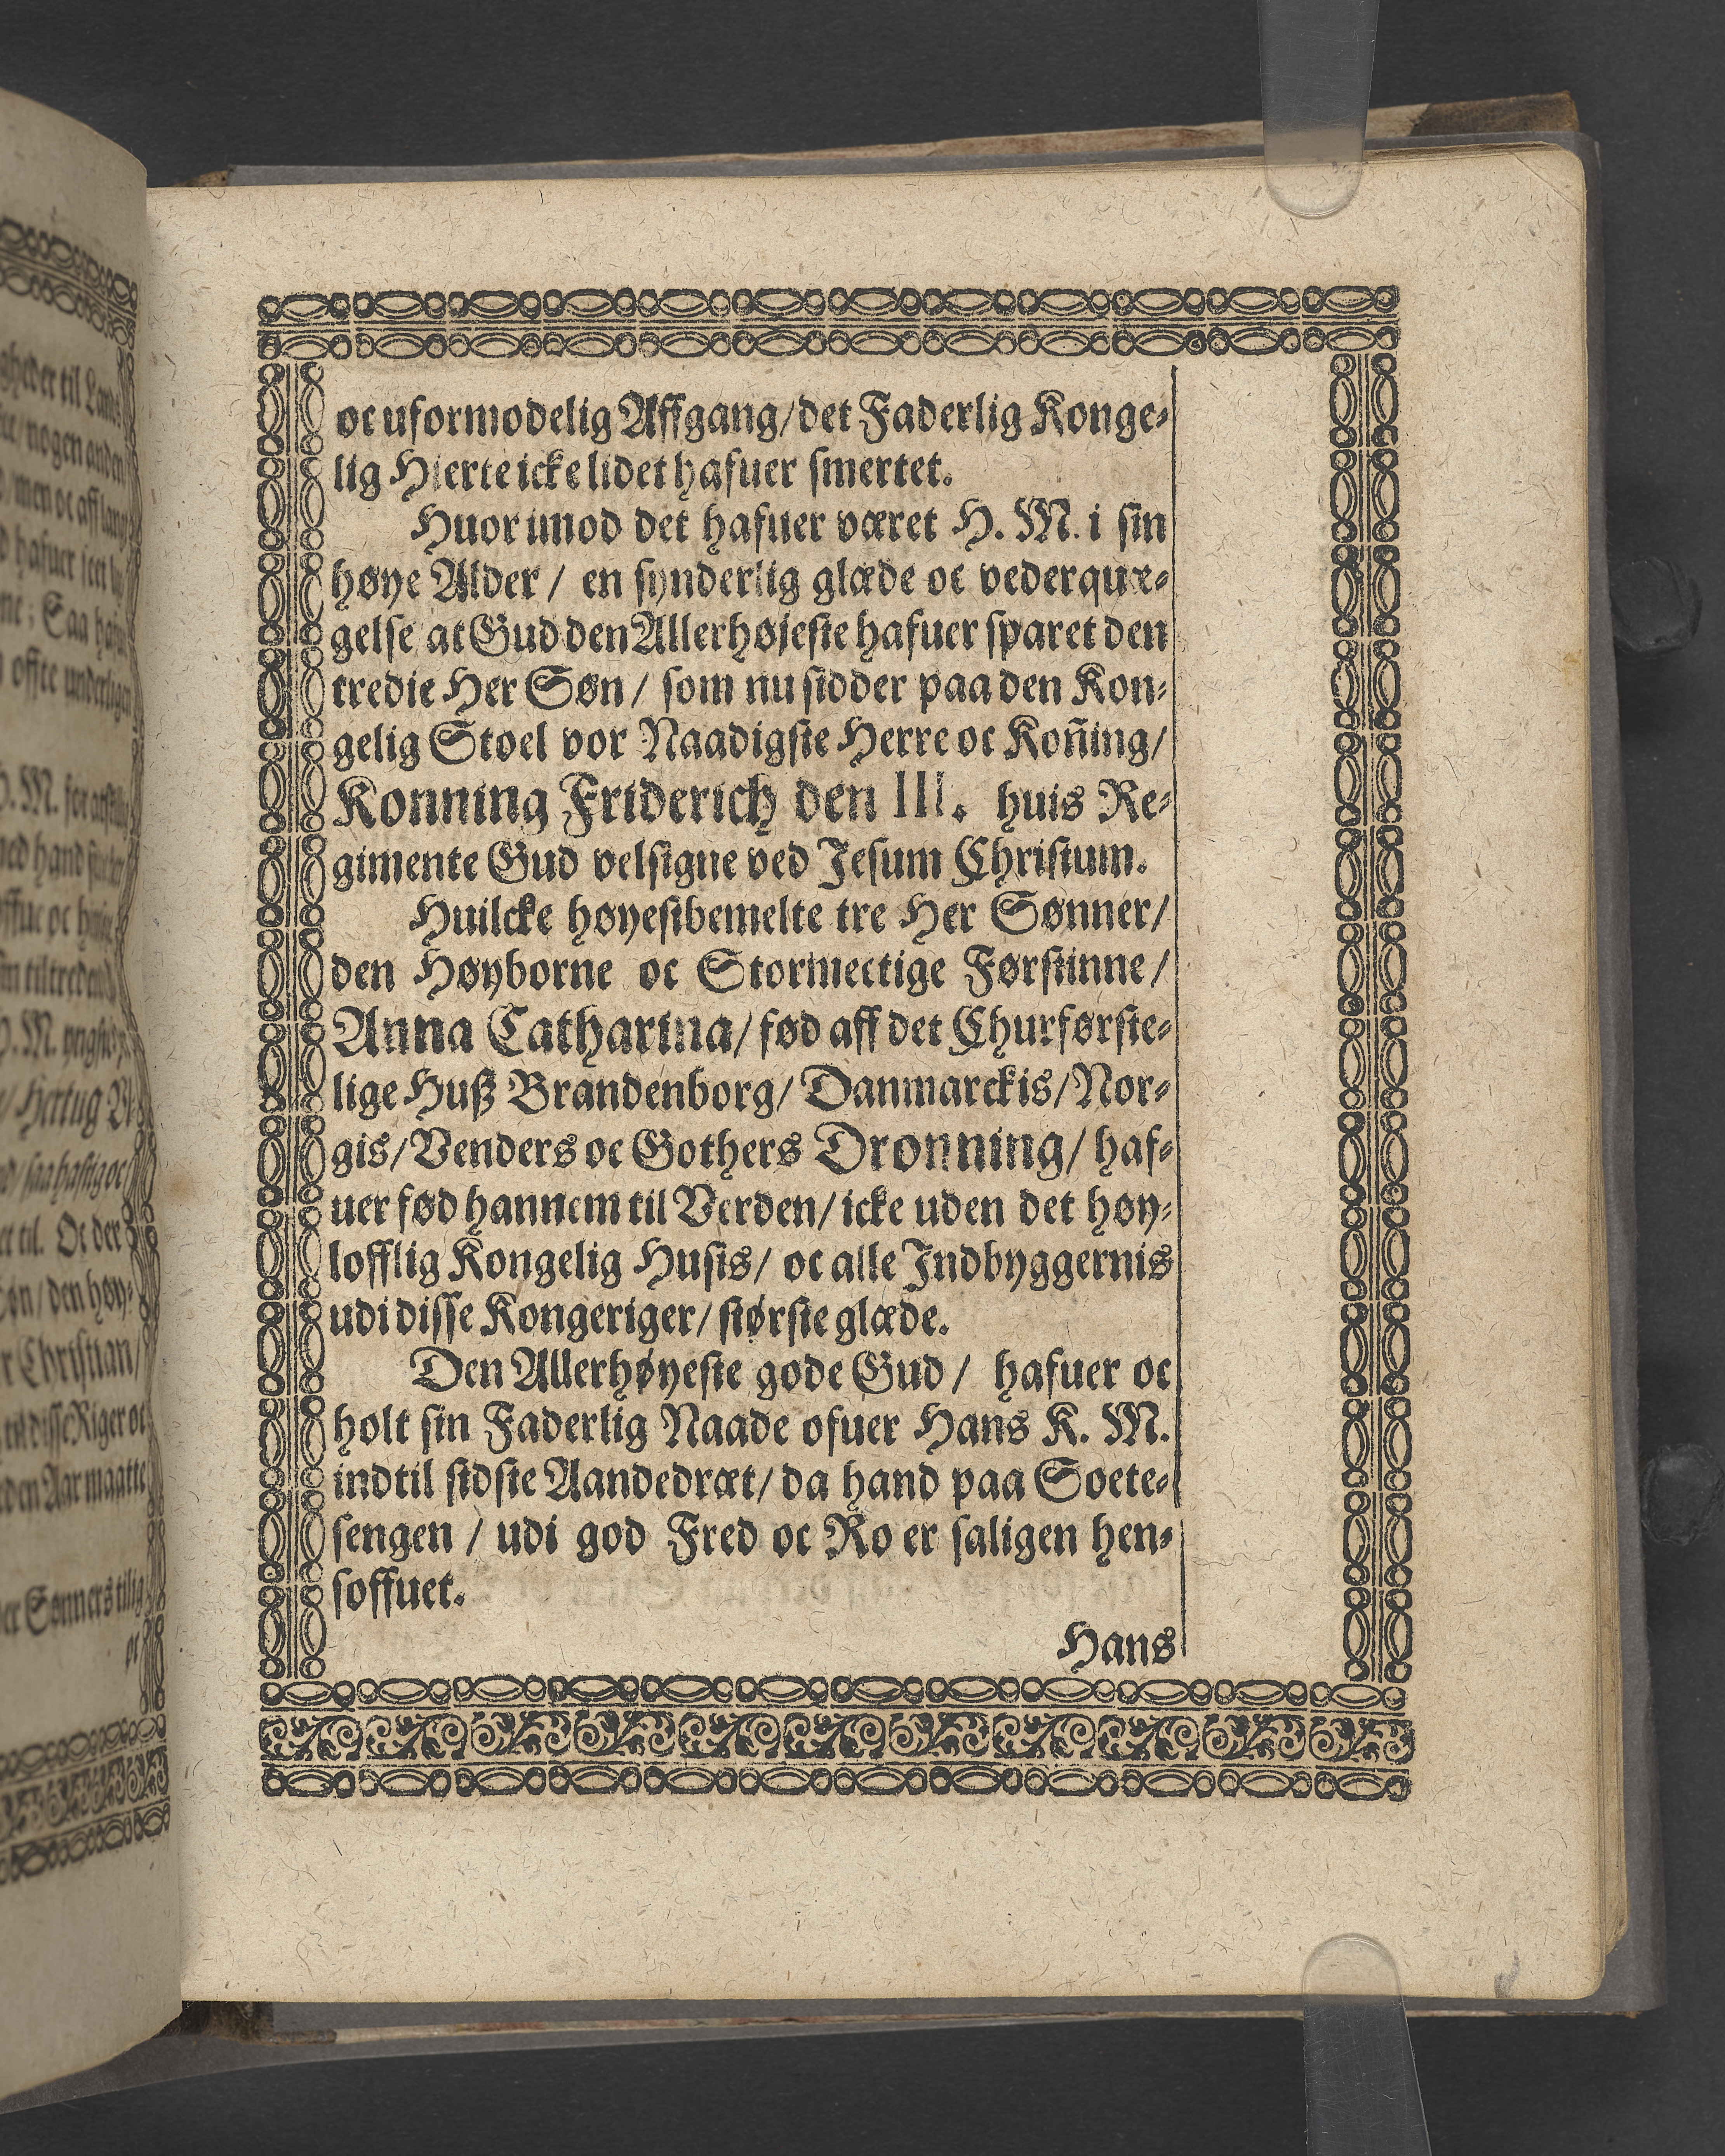 oc uformodelig Affgang/ det Faderlig Konge-
lig Hierte icke lidet hafuer smertet.
Huor imod det hafuer været H. M. i sin
høye Alder/ en synderlig glæde oc vederquæ-
gelse at Gud den Allerhøjeste hafuer sparet den
tredie Her Søn/ som nu sidder paa den Kon-
gelig Stoel vor Naadigste Herre oc Koñing/
Konning Friderich den III. huis Re-
gimente Gud velsigne ved Jesum Christum.
Huilcke høyestbemelte tre Her Sønner/
den Høyborne oc Stormectige Førstinne/
Anna Catharina/ fød aff det Churførste-
lige Huß Brandenborg/ Danmarckis/ Nor-
gis/ Venders oc Gothers Dronning/ haf-
uer fød hannem til Verden/ icke uden det høy-
lofflig Kongelig Husis/ oc alle Indbyggernis
udi disse Kongeriger/ største glæde.
Den Allerhøyeste gode Gud/ hafuer oc
holt sin Faderlig Naade ofuer Hans K. M.
indtil sidste Aandedræt/ da hand paa Soete-
sengen/ udi god Fred oc Ro er saligen hen-
soffuet.
Hans